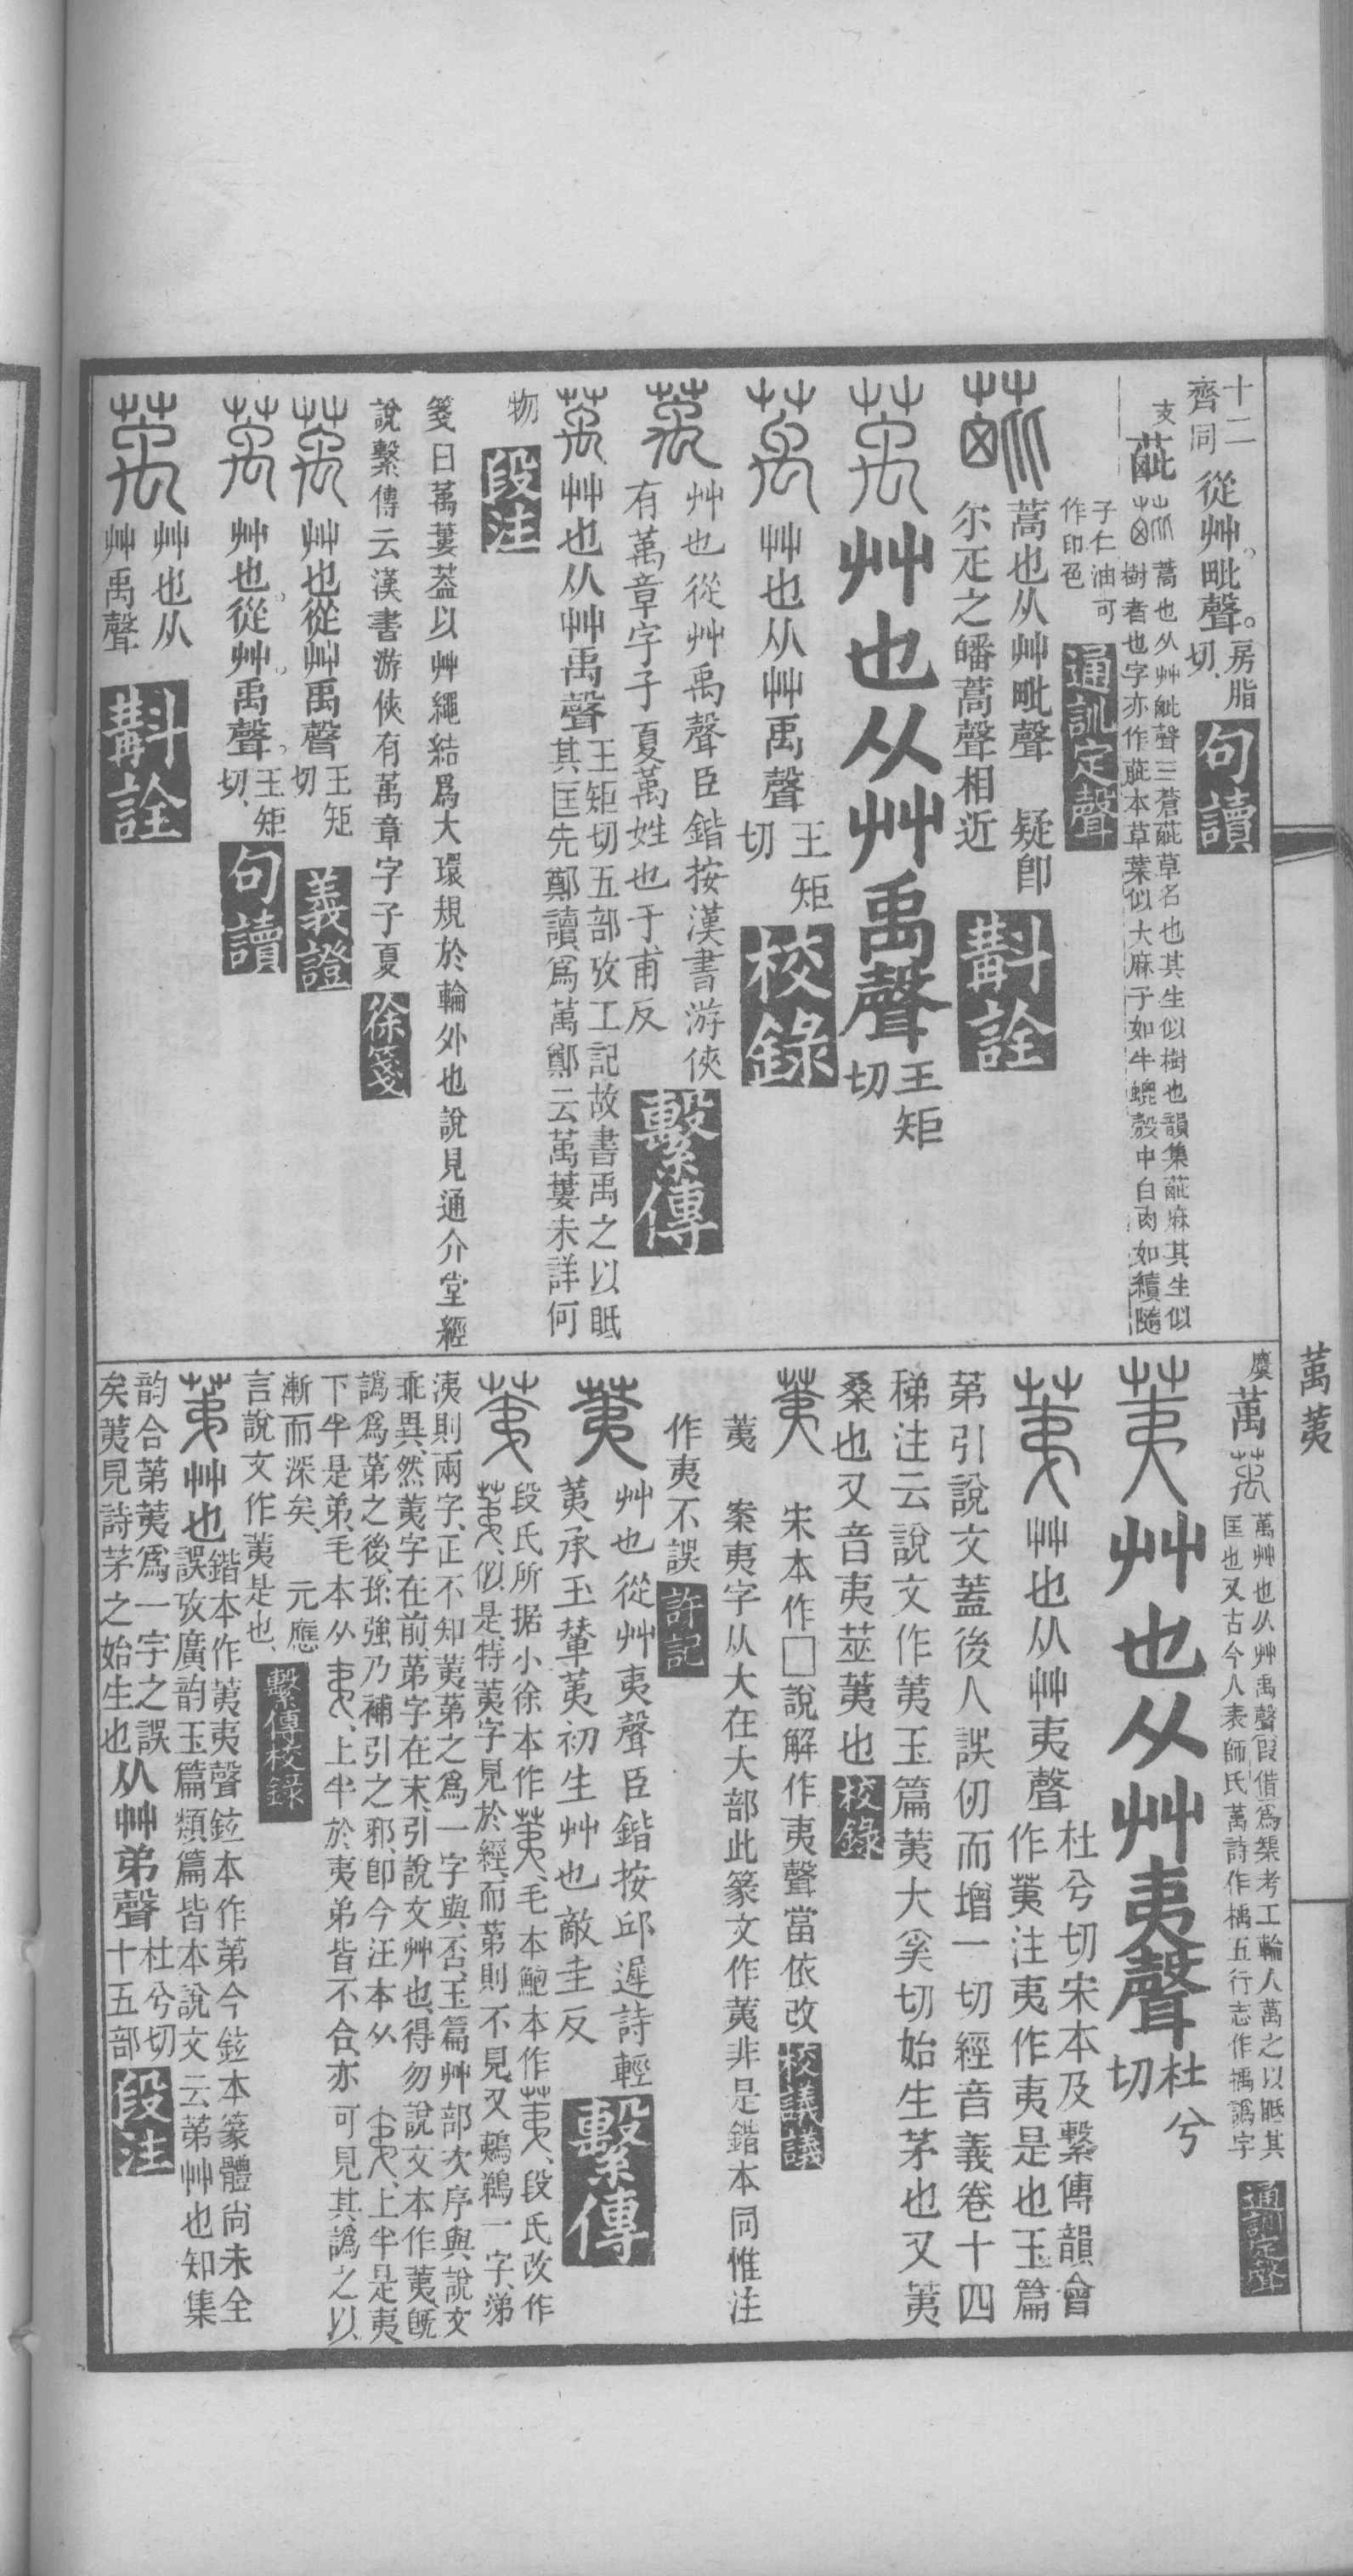 萬荑
十二
齊同
從艸毗聲
房脂
切
句讀
支
蓖
蒿也从艸毗聲三蒼蓖草名也其生似樹也韻集蓖麻其生似
樹者也字亦作蓖本草葉似大麻子如牛蜱殼中白肉如積隨
子仁油可
作印色
通訓定聲
蒿也从艸毗聲 疑卽
尒疋之皤蒿聲相近
斠詮
艸也从艸禹聲
王矩
切
艸也从艸禹聲
王矩
切
校錄
艸也從艸禹聲臣鍇按漢書游俠
有萭章字子夏萭姓也于甫反
繫傳
艸也从艸禹聲
王矩切五部攷工記故書禹之以眡
其匡先鄭讀爲萭鄭云萭蔞未詳何
物
段注
箋曰萭蔞葢以艸繩結爲大環規於輪外也說見通介堂經
說繫傳云漢書游俠有萭章字子夏
徐箋
艸也從艸禹聲
王矩
切
義證
艸也從艸禹聲
王矩
切
句讀
艸也从
艸禹聲
斠詮
麌
萭
萭艸也从艸禹聲叚借爲榘考工輪人萭之以眡其
匡也又古今人表師氏萭詩作楀五行志作禑譌字
通訓定聲
艸也从艸夷聲
杜兮
切
艸也从艸夷聲
杜兮切宋本及繫傳韻會
作荑注夷作夷是也玉篇
苐引說文蓋後人誤仞而增一切經音義卷十四
稊注云說文作荑玉篇荑大奚切始生茅也又荑
桑也又音夷莁荑也
校錄
宋本作□說解作夷聲當依改
校議議
荑 案夷字从大在大部此篆文作荑非是鍇本同惟注
作夷不誤
許記
艸也從艸夷聲臣鍇按邱遲詩輕
荑承玉輦荑初生艸也敵圭反
繫傳
段氏所据小徐本作
毛本鮑本作
段氏改作
似是特荑字見於經而苐則不見又鵜鶇一字涕
洟則兩字正不知荑苐之爲一字與否玉篇艸部次序與說文
乖異然荑字在前苐字在末引說文艸也得勿說文本作荑旣
譌爲苐之後孫強乃補引之邪卽今汪本从
上半是夷
下半是弟毛本从
上半於夷弟皆不合亦可見其譌之以
漸而深矣 元應
言說文作荑是也
繫傳校錄
艸也
鍇本作荑夷聲鉉本作苐今鉉本篆體尙未全
誤攷廣韵玉篇類篇皆本說文云苐艸也知集
韵合苐荑爲一字之誤
矣荑見詩茅之始生也
从艸弟聲
杜兮切
十五部
段注